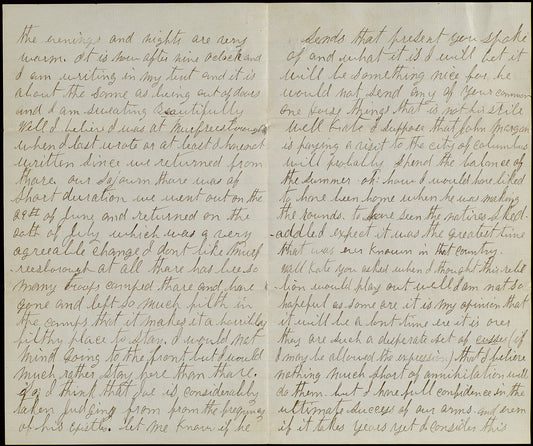 the evenings and nights are very
warm. it is now after nine oclock and
I am writing in my tent and it is
about the same as being out of doors
and I am sweating beautifully
Well I believe I was at Murfreesborough
when I last wrote or at least I have not
written since we returned from
thare. our sojourn thare was of
short duration we went out on the
29th of June and returned on the
20th of July which was a very
agreeable change I dont like Murf-
reesborough at all thare has bee so
many troops camped thare and have
gone and left so much filth in
the camps that it makes it a horribley
filthy place to stay. I would not
mind going to the front but I would
much rather stay here than thare.
I think that Joe is considerably
taken judging from from the frequency
of his epistles. let me know if he
sends that present you spoke
of and what it is I will bet it
will be something nice for he
would not send any of your common
one horse things that is not his stile
Well Kate I suppose that John Morgan
is paying a visit to the city of columbus
will probably spend the balance of
the summer. oh how I would have liked
to have been home when he was making
the rounds. to have seen the natives sked-
addle I expect it was the greatest time
that was ever known in that country.
Well Kate you asked when I thought this rebel
lion would play out well I am not so
hopeful as some are it is my opinion that
it will be a long time ere it is over
they are such a desperate set of cusses (if
I may be allowed the expression) that I believe
nothing much short of annihilation will
do them but I have full confidence in the
ultimate success of our arms. and even
if it takes years yet I consider this